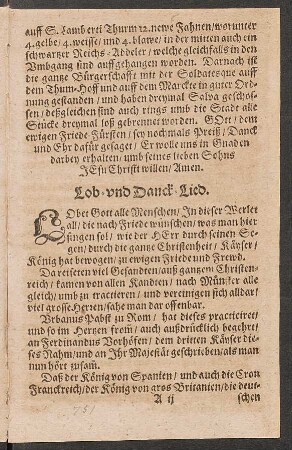 auff S. Lamberti Thurm 12. newe Fahnen/ worunter
4. gelbe/ 4. weisse/ und 4. blawe/ in der mitten auch ein
schwartzer Reichs-Addeler/ welche gleichfalls in den
Umbgang sind auffgehangen worden. Darnach ist
die gantze Bürgerschafft mit der Soldatesque auff
dem Thum-Hoff und auff dem Marckte in guter Ord-
nung gestanden/ und haben dreymal Salva geschos-
sen/ deßgleichen sind auch rings umb die Stadt alle
Stücke dreymal loß gebrennet worden. GOtt/ dem
ewigen Friede Fürsten/ sey nochmals Preiß/ Danck
und Ehr dafür gesaget/ Er wolle uns in Gnaden
darbey erhalten/ umb seines lieben Sohns
JEsu Christi willen/ Amen.
Lob- vnd Danck-Lied.
LObet Gott alle Menschen/ In dieser Werlet
all/ die nach Friede wünschen/ was man hier
singen sol/ wie der HErr durch seinen Se-
gen/ durch die gantze Christenheit/ Käyser/
König hat bewogen/ zu ewigen Friede und Frewd.
Da reiseten viel Gesandten/ auß gantzem Christen-
reich/ kamen von allen Kandten/ nach Münster alle
gleich/ umb zu tractieren/ und vereinigen sich alldar/
viel grosse Herren/ sahe man dar offenbar.
Urbanus Pabst zu Rom/ hat dieses practiciret/
und so im Hertzen from/ auch außdrücklich begehrt/
an Ferdinandus Vorhöfen/ dem dritten Käyser die-
ses Nahm/ und an Ihr Majestät geschrieben/ als man
nun hört zusam.
Daß der König von Spanien/ und auch die Cron
Franckreich/ der König von gros Britanien/ die deut-
A ij schen